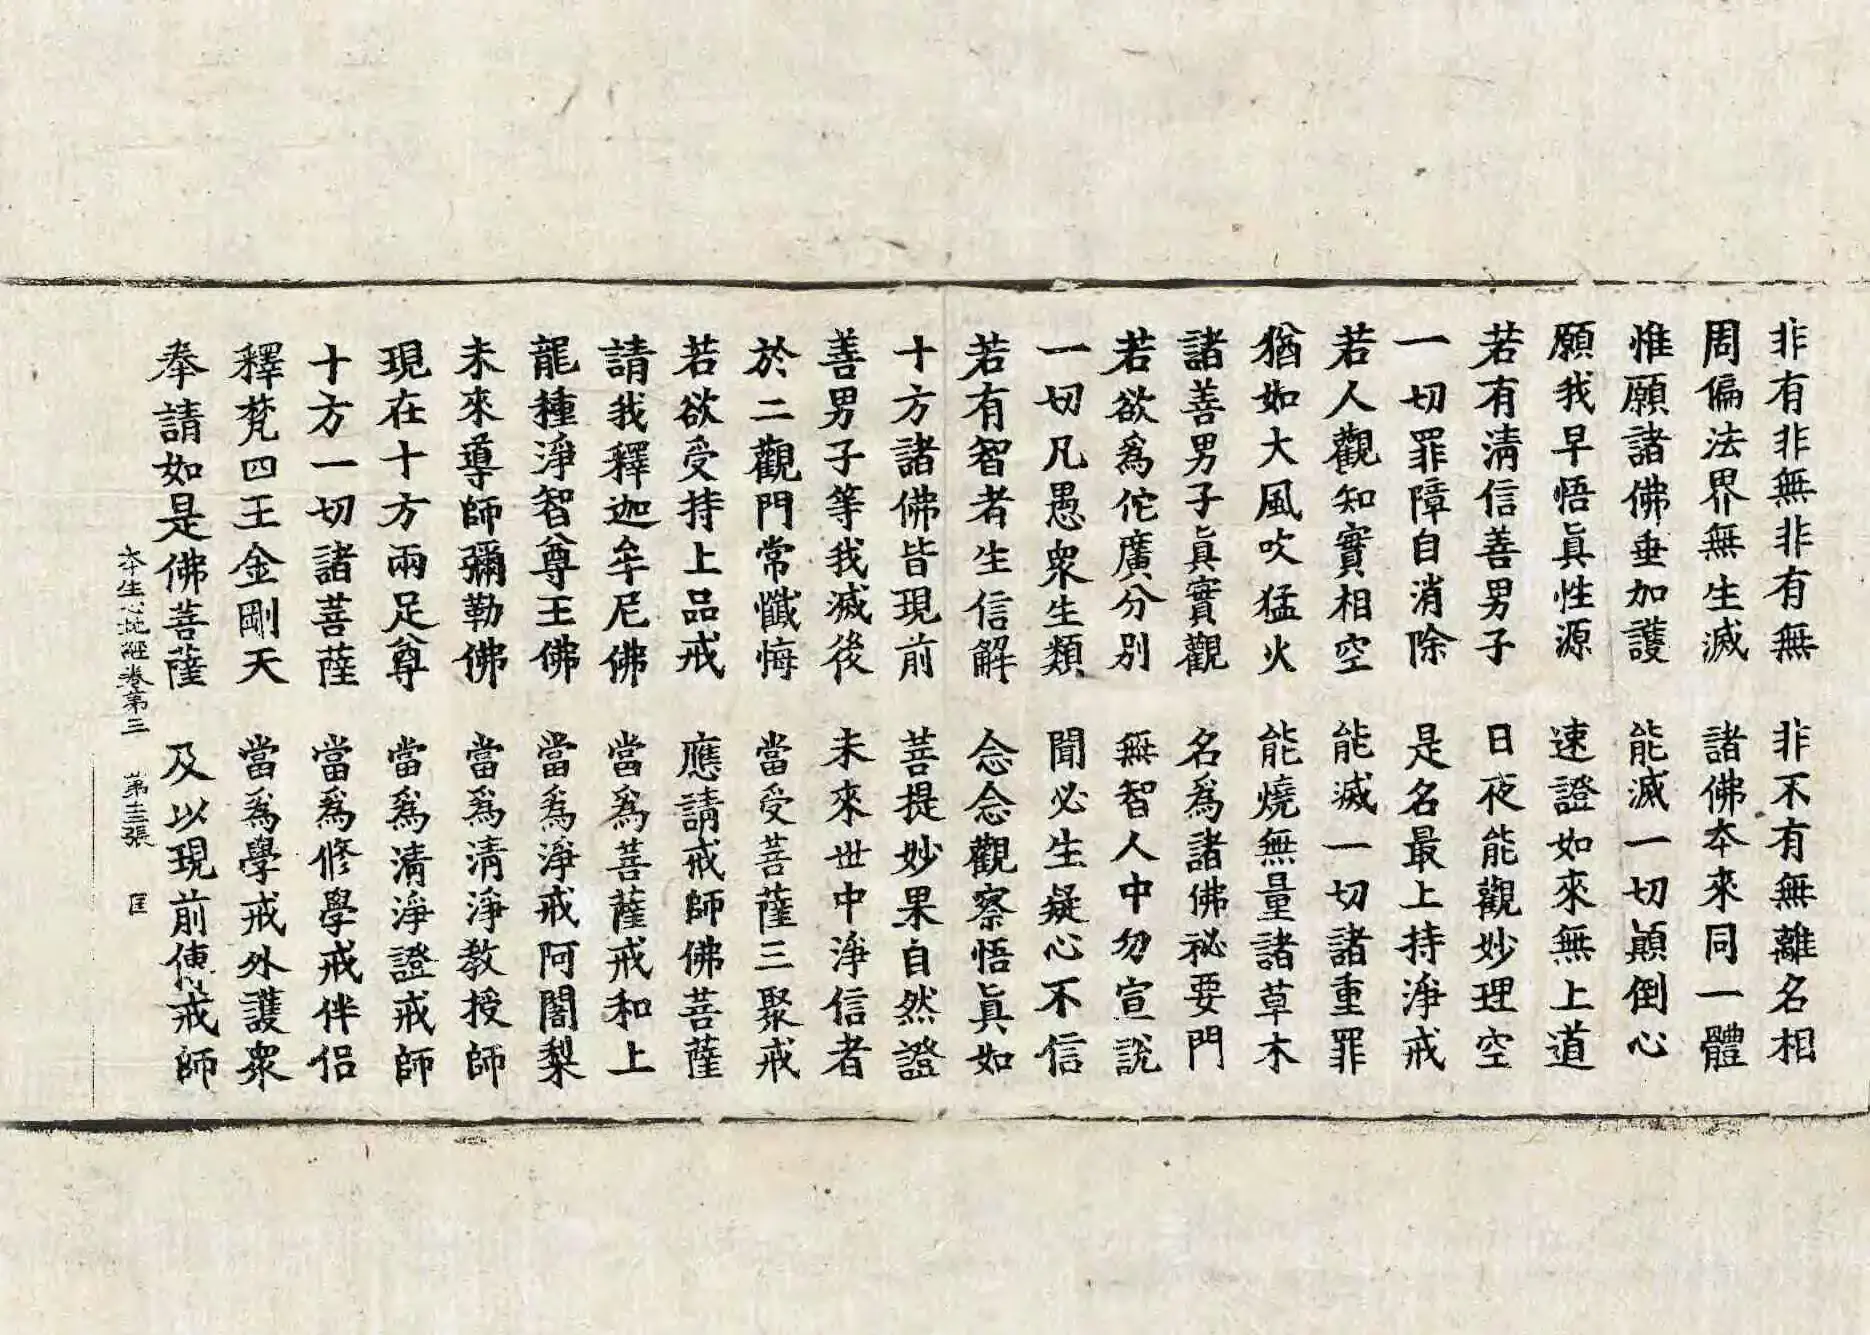 非有非無非有無　非不有無離名相
周徧法界無生滅　諸佛本來同一體
惟願諸佛垂加護　能滅一切顚倒心
願我早悟眞性源　速證如來無上道
若有淸信善男子　日夜能觀妙理空
一切罪障自消除　是名最上持淨戒
若人觀知實相空　能滅一切諸重罪
猶如大風吹猛火　能燒無量諸草木
諸善男子眞實觀　名爲諸佛祕要門
若欲爲佗廣分別　無智人中勿宣說
一切凡愚衆生類　聞必生疑心不信
若有智者生信解　念念觀察悟眞如
十方諸佛皆現前　菩提妙果自然證
善男子等我滅後　未來世中淨信者
於二觀門常懺悔　當受菩薩三聚戒
若欲受持上品戒　應請戒師佛菩薩
請我釋迦牟尼佛　當爲菩薩戒和上
龍種淨智尊王佛　當爲淨戒阿闍梨
未來導師彌勒佛　當爲淸淨敎授師
現在十方兩足尊　當爲淸淨證戒師
十方一切諸菩薩　當爲修學戒伴侶
釋梵四王金剛天　當爲學戒外護衆
奉請如是佛菩薩　及以現前傳戒師
本生心地經卷第三　第十三張　匡